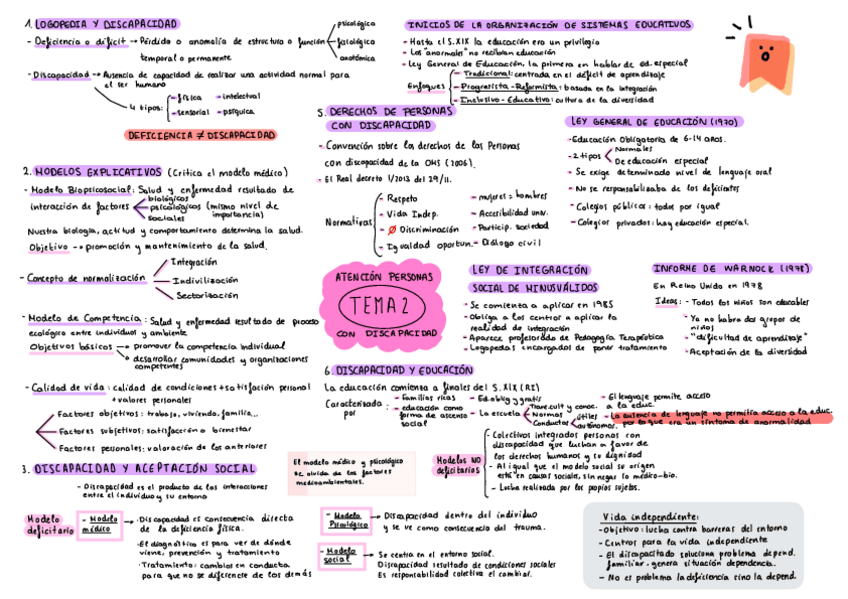 1. LOGOPEDIA Y DISCAPACIDAD
- Deficiencia o déficit → Pérdida o anomalía de estructura o función
psicológica
fisiológica
anatómica
temporal o permanente
- Discapacidad → Ausencia de capacidad de realizar una actividad normal para
el ser humano
4 tipos:
- física
- intelectual
- sensorial
- psíquica
DEFICIENCIA ≠ DISCAPACIDAD
2. MODELOS EXPLICATIVOS (Critica el modelo médico)
- Modelo Biopsicosocial: Salud y enfermedad resultado de
interacción de factores
biológicos
psicológicos (mismo nivel de
importancia)
sociales
Nuestra biología, actitud y comportamiento determina la salud.
Objetivo → promoción y mantenimiento de la salud.
- Concepto de normalización
Integración
Indivilización
Sectorización
- Modelo de Competencia: Salud y enfermedad resultado de proceso
ecológico entre individuo y ambiente
Objetivos básicos
→ promover la competencia individual
→ desarrollar comunidades y organizaciones
competentes
- Calidad de vida: calidad de condiciones + satisfacción personal
+ valores personales
Factores objetivos: trabajo, vivienda, familia...
Factores subjetivos: satisfacción o bienestar
Factores personales: valoración de los anteriores
3. DISCAPACIDAD Y ACEPTACIÓN SOCIAL
- Discapacidad es el producto de las interacciones
entre el individuo y su entorno
El modelo médico y psicológico
se olvida de los factores
medioambientales.
Modelo
deficitario
- Modelo
médico
· Discapacidad es consecuencia directa
de la deficiencia física.
· El diagnóstico es para ver de dónde
viene, prevención y tratamiento
· Tratamiento: cambios en conducta
para que no se diferencie de los demás
- Modelo
Psicológico
Discapacidad dentro del individuo
y se ve como consecuencia del trauma.
- Modelo
social
Se centra en el entorno social.
Discapacidad resultado de condiciones sociales
Es responsabilidad colectiva el cambiar.
INICIOS DE LA ORGANIZACIÓN DE SISTEMAS EDUCATIVOS
- Hasta el S.XIX la educación era un privilegio
- Los "anormales" no recibían educación
- Ley General de Educación, la primera en hablar de ed. especial
Enfoques
- Tradicional: centrada en el déficit de aprendizaje
- Progresista-Reformista: basada en la integración
- Inclusivo-Educativo: cultura de la diversidad
5. DERECHOS DE PERSONAS
CON DISCAPACIDAD
- Convención sobre los derechos de las Personas
con discapacidad de la OMS (2006).
- El Real decreto 1/2013 del 29/11.
Normativas
- Respeto
- Vida Indep.
- Ø Discriminación
- Igualdad oportun.
- mujeres = hombres
- Accesibilidad univ.
- Particip. sociedad
- Diálogo civil
LEY GENERAL DE EDUCACIÓN (1970)
- Educación Obligatoria de 6-14 años.
- 2 tipos
Normales
De educación especial
- Se exige determinado nivel de lenguaje oral
- No se responsabilizaba de los deficientes
- Colegios públicos: todos por igual
- Colegios privados: hay educación especial.
ATENCIÓN PERSONAS
TEMA 2
CON DISCAPACIDAD
LEY DE INTEGRACIÓN
SOCIAL DE MINUSVÁLIDOS
- Se comienza a aplicar en 1985
- Obliga a los centros a aplicar la
realidad de integración
- Aparece profesorado de Pedagogía Terapéutica
- Logopedas encargados de poner tratamiento
INFORME DE WARNOCK (1978)
En Reino Unido en 1978
Ideas:
- Todos los niños son educables
- Ya no habrá dos grupos de
niños
- "dificultad de aprendizaje"
- Aceptación de la diversidad
6. DISCAPACIDAD Y EDUCACIÓN
La educación comienza a finales del S.XIX (RI)
Caracterizada
por
- Familias ricas
- educación como
forma de ascenso
social
- Ed. oblig y gratis
- La escuela
Trans. cult y conoc.
Normas
Conductas
útiles
autónomas.
- El lenguaje permite acceso
a la educ.
- La ausencia de lenguaje no permitía acceso a la educ.
por lo que era un síntoma de anormalidad
Modelos NO
deficitarios
- Colectivos integrados personas con
discapacidad que luchan a favor de
los derechos humanos y su dignidad
- Al igual que el modelo social su origen
está en causas sociales, sin negar lo médico-bio.
- Lucha realizada por los propios sujetos.
Vida independiente:
- Objetivo: lucha contra barreras del entorno
- Centros para la vida independiente
- El discapacitado soluciona problema depend.
familiar, genera situación dependencia.
- No es problema la deficiencia sino la depend.